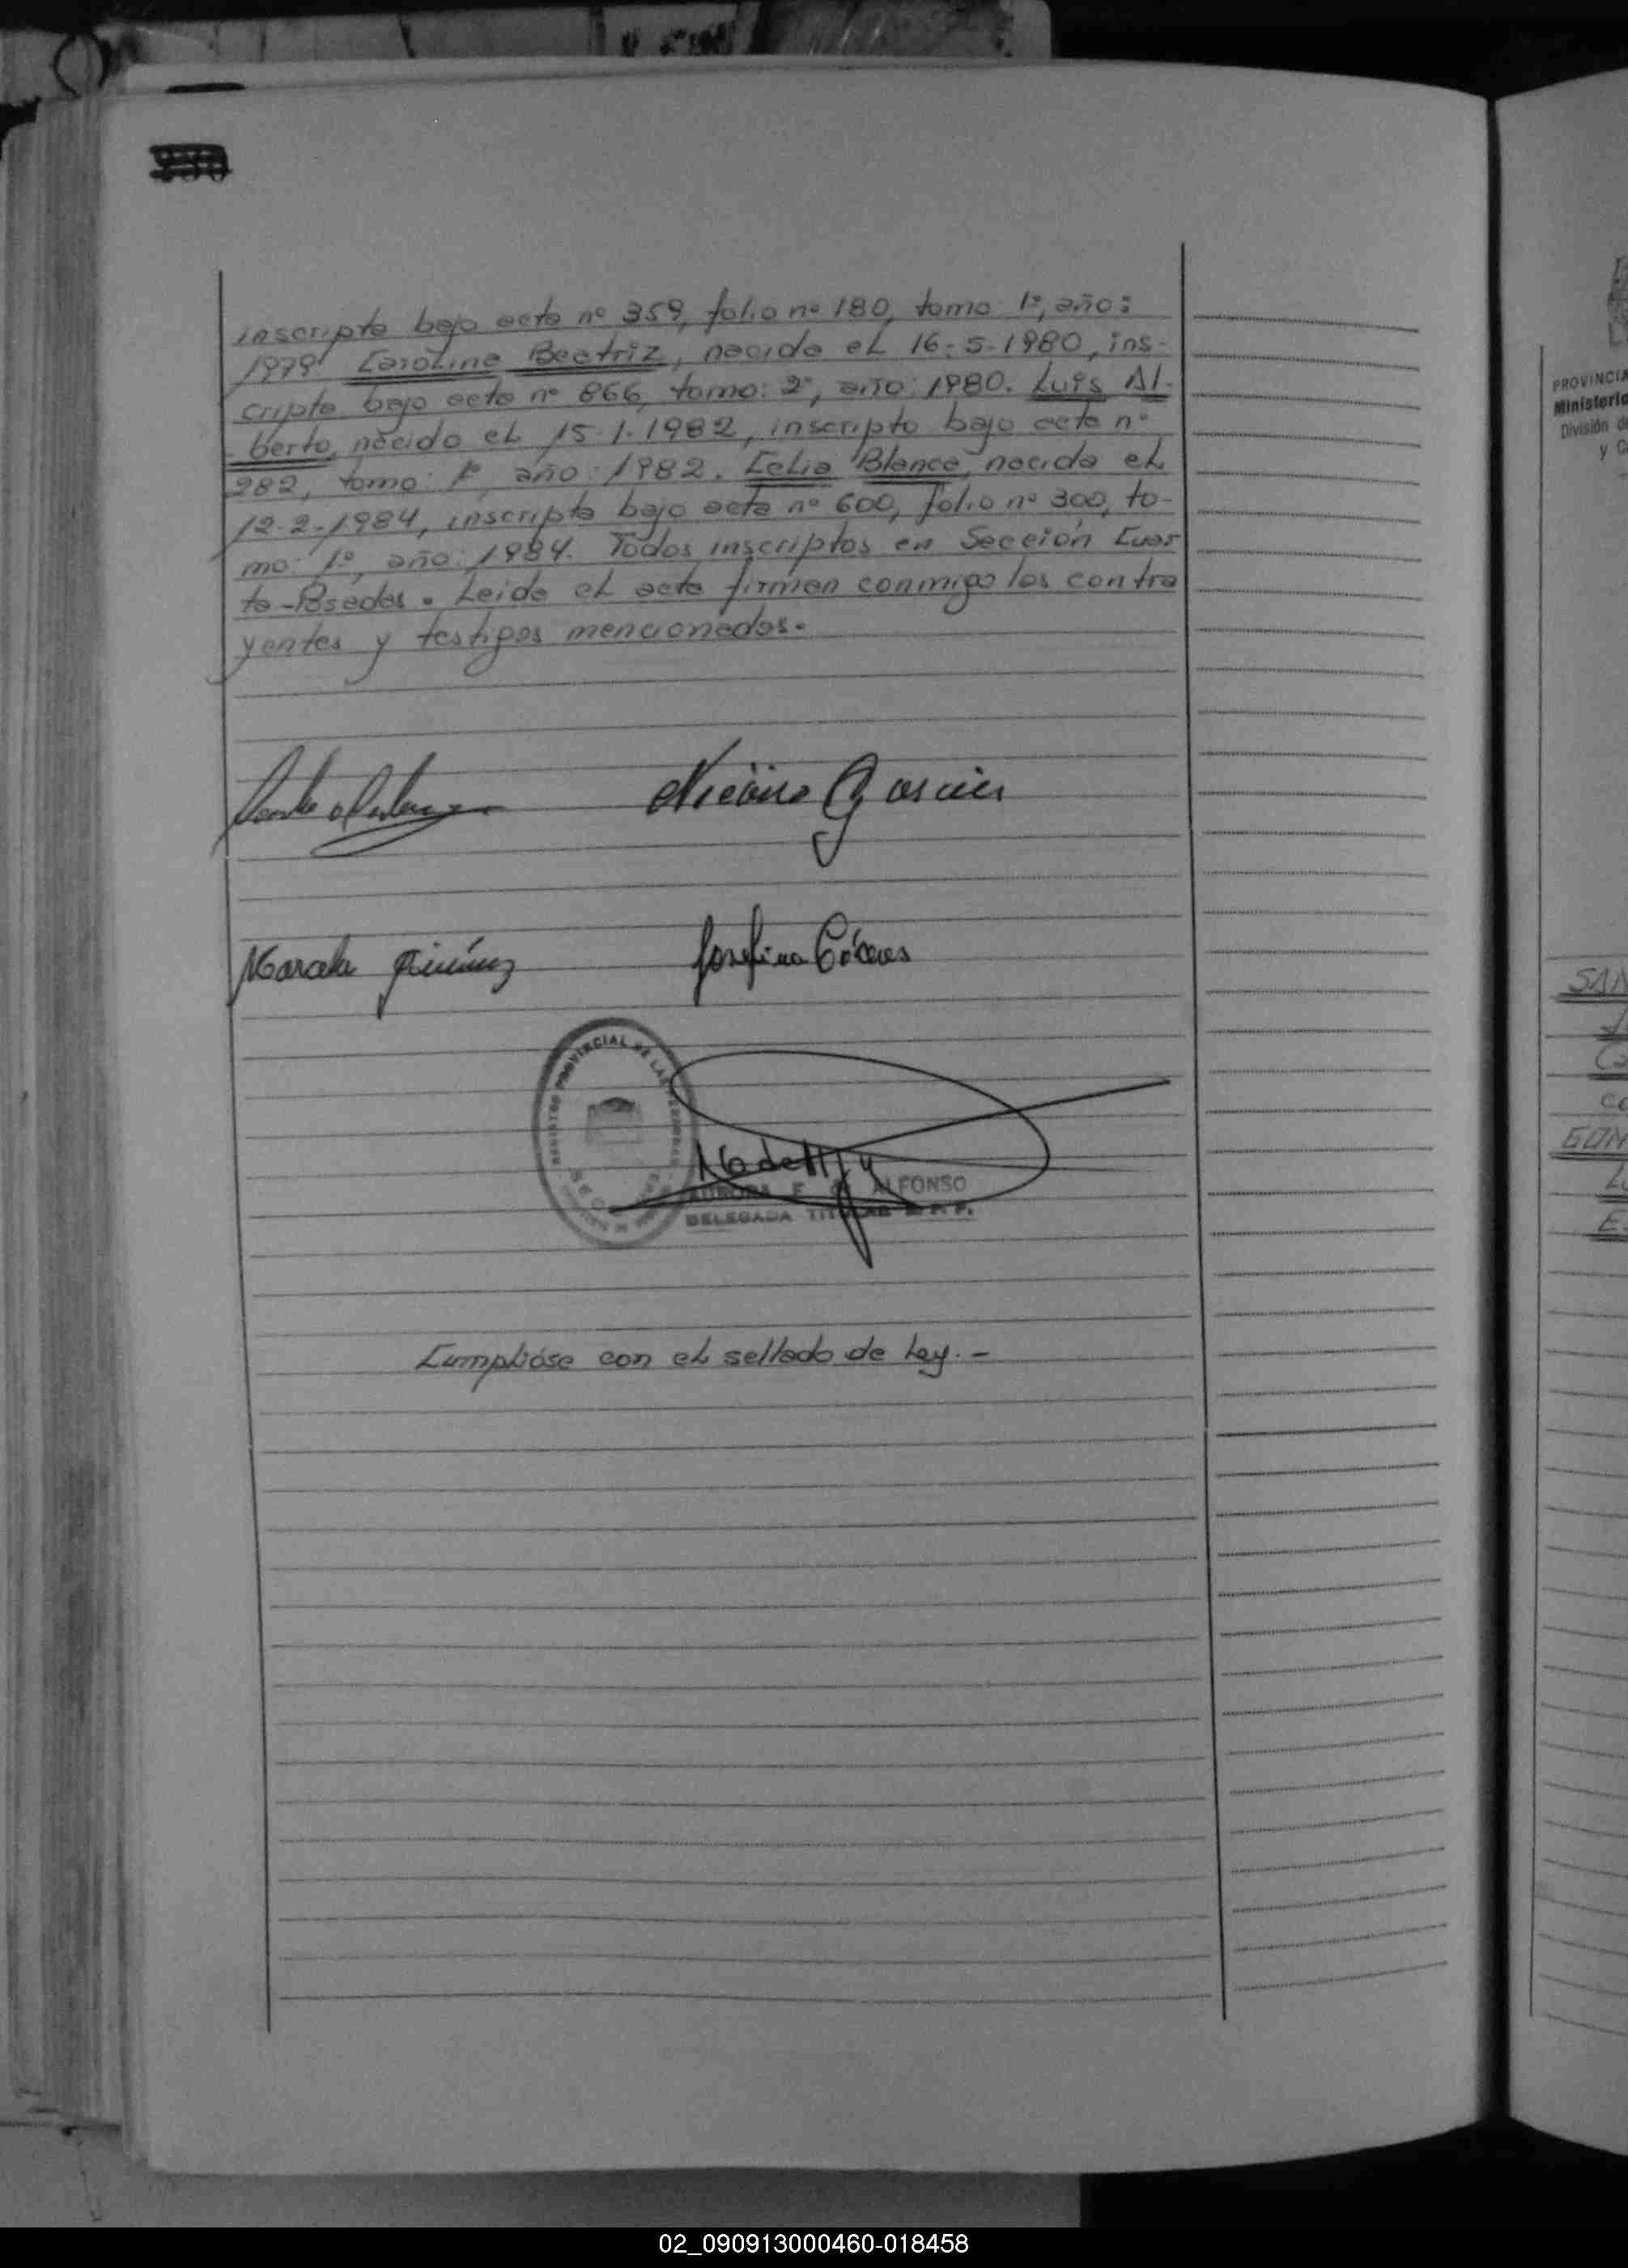 inscripta bajo acta nº 359, folio nº 180, tomo 1º, año:
1979 Carolina Beatriz, nacida el 16-5-1980, ins-
cripta bajo acta nº 866, tomo: 2º, año: 1980. Luis Al-
berto, nacido el 15-1-1982, inscripto bajo acta nº
282, tomo: 1º, año: 1982. Celia Blanca, nacida el
12-2-1984, inscripta bajo acta nº 600, folio nº 300, to-
mo: 1º, año: 1984. Todos inscriptos en Sección Cuar
ta-Posadas. Leída el acta firman conmigo los contra
yentes y testigos mencionados.
García
Marcela Giménez Josefina Cáceres
REGISTRO PROVINCIAL DE LAS PERSONAS
AURORA E. ALFONSO
DELEGADA TITULAR R.P.P.
Cumplióse con el sellado de Ley.-
PROVINCIA
Ministerio
División d
y C
SAN
GON
02_090913000460-018458